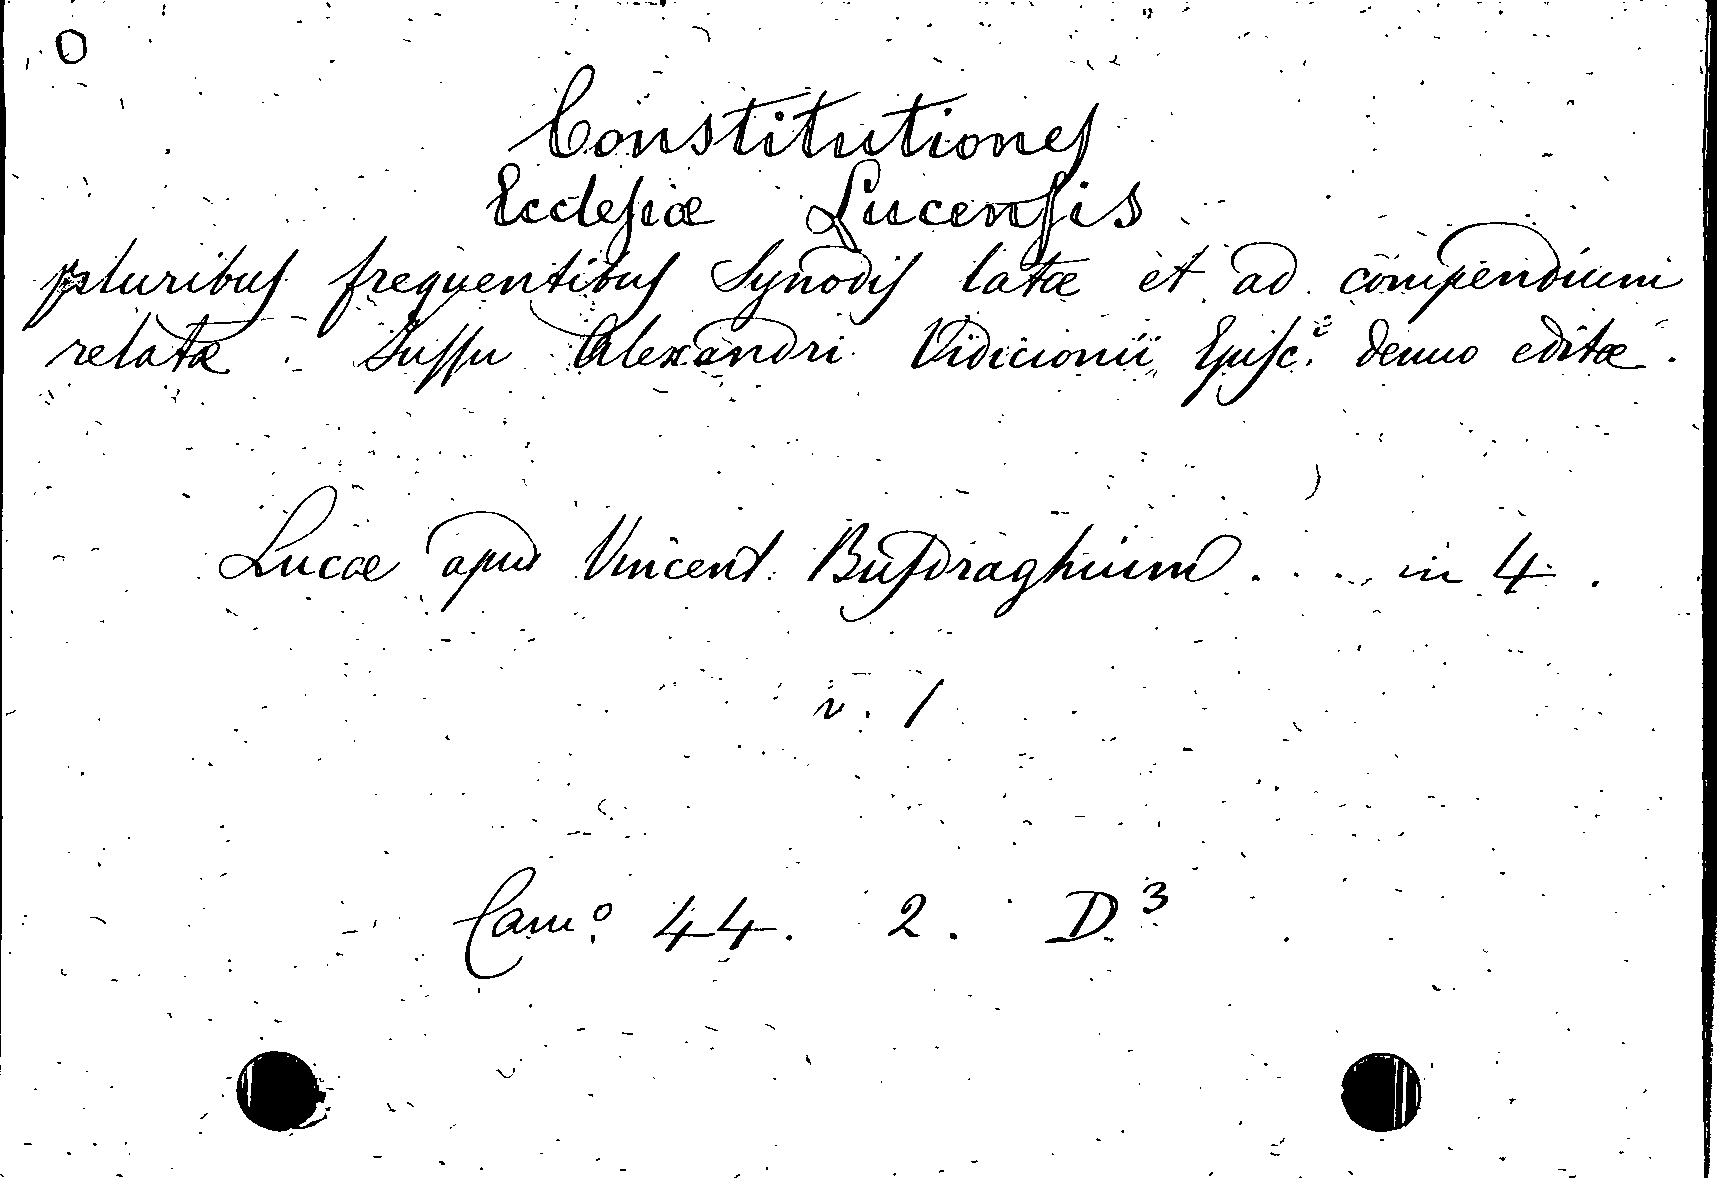 O
Constitutiones
Ecclesiæ Lucensis
pluribus frequentibus Synodis latæ et ad compendium
relatæ. Jussu Alexandri Vidicionii Episc.ⁱ denuo editæ.
Lucæ apud Vincent. Busdraghium . . . in 4.
v. 1
Cam.º 44. 2. D.³